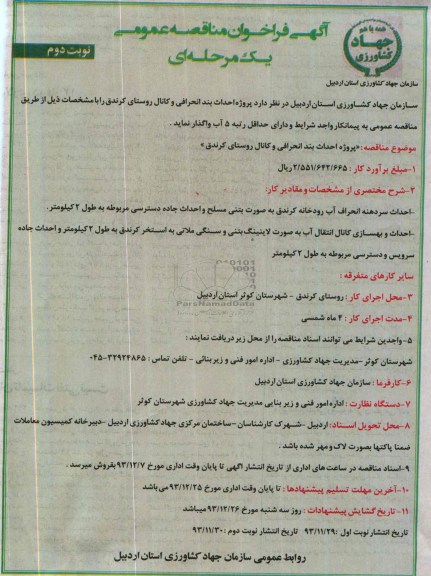 آگهی فراخوان مناقصه عمومی
همه با هم
جهاد
کشاورزی
یک مرحله‌ای
نوبت دوم
سازمان جهاد کشاورزی استان اردبیل
سازمان جهاد کشاورزی استان اردبیل در نظر دارد پروژه احداث بند انحرافی و کانال روستای کرندق را با مشخصات ذیل از طریق
مناقصه عمومی به پیمانکار واجد شرایط و دارای حداقل رتبه ۵ آب واگذار نماید.
موضوع مناقصه: «پروژه احداث بند انحرافی و کانال روستای کرندق»
۱-مبلغ برآورد کار: ۲/۵۵۱/۶۴۲/۶۶۵ ریال
۲-شرح مختصری از مشخصات و مقادیر کار:
-احداث سردهنه انحراف آب رودخانه کرندق به صورت بتنی مسلح و احداث جاده دسترسی مربوطه به طول ۲ کیلومتر.
-احداث و بهسازی کانال انتقال آب به صورت لاینینگ بتنی و سنگی ملاتی به استخر کرندق به طول ۲ کیلومتر و احداث جاده
سرویس و دسترسی مربوطه به طول ۲ کیلومتر
سایر کارهای متفرقه:
۳-محل اجرای کار: روستای کرندق - شهرستان کوثر استان اردبیل
۴-مدت اجرای کار: ۴ ماه شمسی
۵-واجدین شرایط می توانند اسناد مناقصه را از محل زیر دریافت نمایند:
شهرستان کوثر -مدیریت جهاد کشاورزی - اداره امور فنی و زیربنائی - تلفن تماس: ۳۲۹۲۴۸۶۵-۰۴۵
۶-کارفرما: سازمان جهاد کشاورزی استان اردبیل
۷-دستگاه نظارت: اداره امور فنی و زیر بنایی مدیریت جهاد کشاورزی شهرستان کوثر
۸-محل تحویل اسناد: اردبیل -شهرک کارشناسان -ساختمان مرکزی جهاد کشاورزی اردبیل -دبیرخانه کمیسیون معاملات
ضمنا پاکتها بصورت لاک و مهر شده باشد.
۹-اسناد مناقصه در ساعت های اداری از تاریخ انتشار آگهی تا پایان وقت اداری مورخ ۹۳/۱۲/۷ بفروش میرسد.
۱۰-آخرین مهلت تسلیم پیشنهادها: تا پایان وقت اداری مورخ ۹۳/۱۲/۲۵ می باشد
۱۱-تاریخ گشایش پیشنهادات: روز سه شنبه مورخ ۹۳/۱۲/۲۶ میباشد
تاریخ انتشار نوبت اول: ۹۳/۱۱/۲۹ تاریخ انتشار نوبت دوم: ۹۳/۱۱/۳۰
روابط عمومی سازمان جهاد کشاورزی استان اردبیل
ParsNamadData